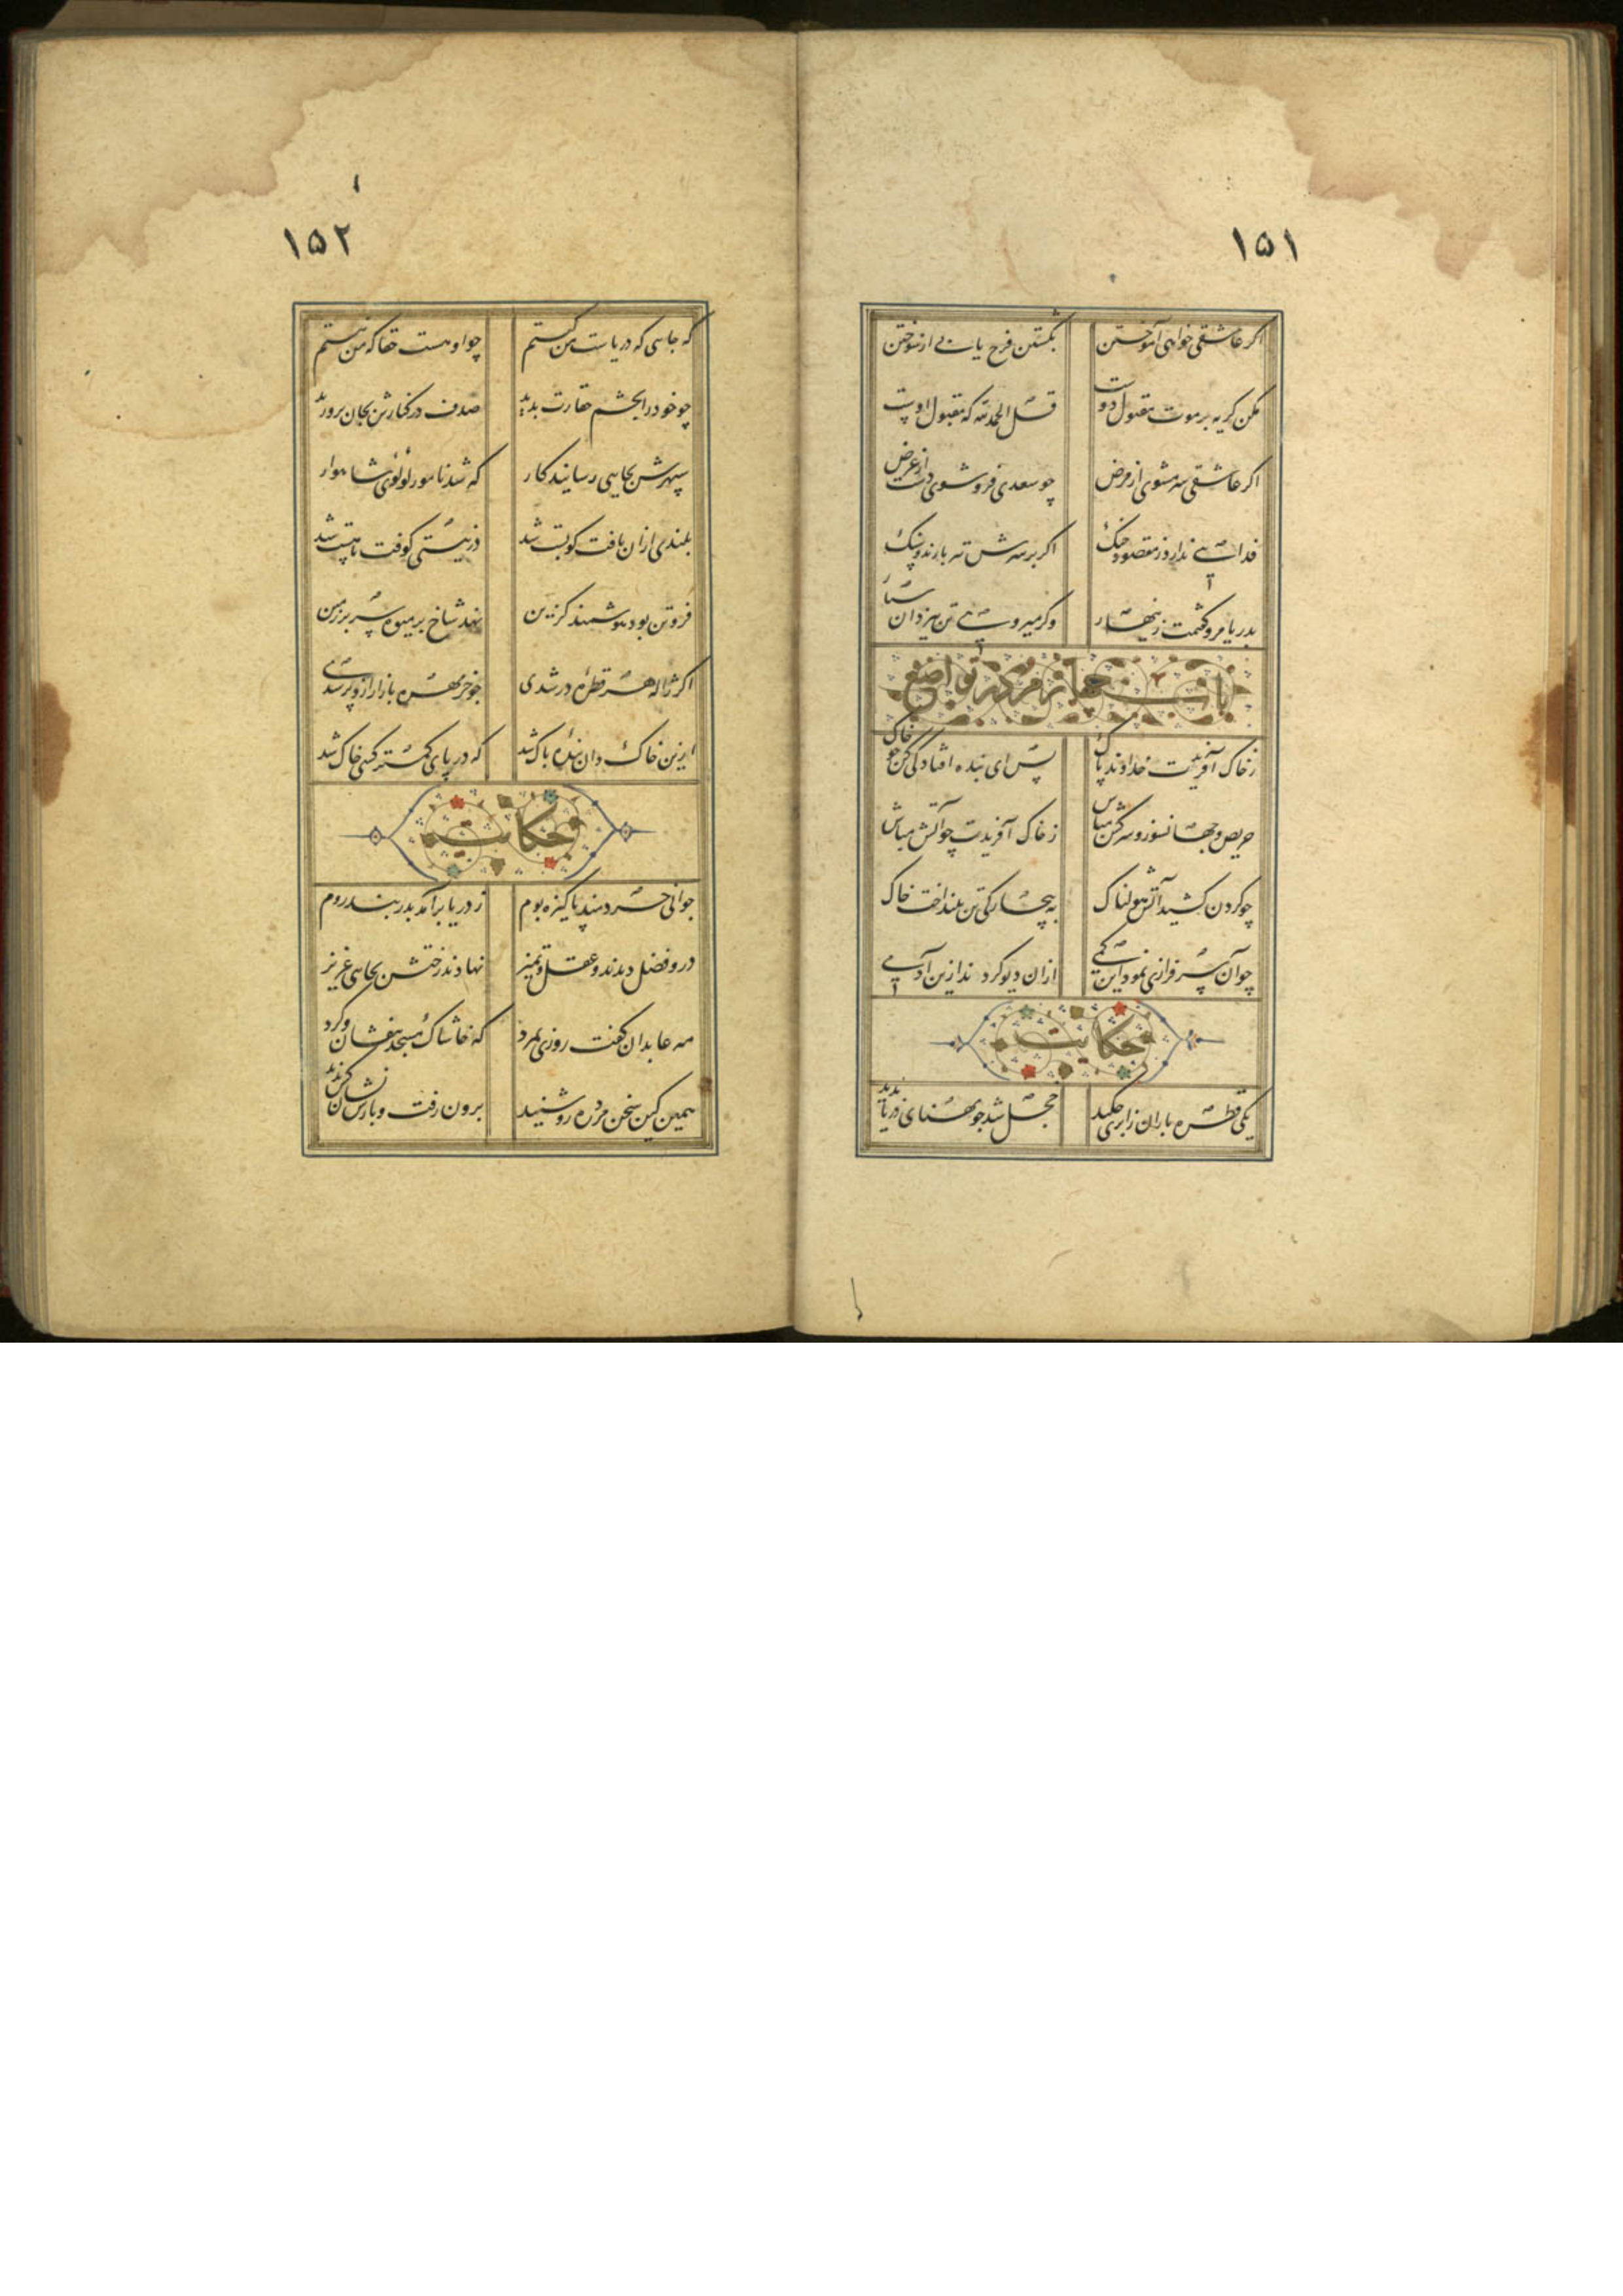 ۱۵۱
اگر عاشقی خواهی آموختن بکشتن فرح یابی از سوختن
مکن گریه بر موت مقبول دوست قل الحمدلله که مقبول اوست
اگر عاشقی سر مشوی از مرض چو سعدی فروشوی دست از غرض
فدائی ندارد ز مقصود چنگ اگر بر سرش تیر بارند و سنگ
بدریا مرو گفتمت زینهار وگر میروی تن
باب چهارم در تواضع
ز خاک آفریدت خداوند پاک پس ای بنده افتادگی کن چو خاک
حریص و جهانسوز و سرکش مباش ز خاک آفریدت چو آتش مباش
چو گردن کشید آتش هولناک به بیچارگی تن بینداخت خاک
چو آن سرفرازی نمود این کمی ازان دیو کردند ازین آدمی
حکایت
یکی قطره باران ز ابری چکید خجل شد چو پهنای دریا بدید
۱۵۲
که جایی که دریاست من کیستم چو او هست حقا که من نیستم
چو خود را بچشم حقارت بدید صدف در کنارش بجان پرورید
سپهرش بجایی رسانید کار که شد نامور لؤلؤی شاهوار
بلندی ازان یافت کو پست شد در نیستی کوفت تا هست شد
فروتن بود هوشمند گزین نهد شاخ پر میوه سر بر زمین
اگر ژاله هر قطره در شدی چو خرمهره بازار ازو پر شدی
ازین خاک دان بنده پاک شد که در پای کمتر کسی خاک شد
حکایت
جوانی خردمند پاکیزه بوم ز دریا برآمد بدربند روم
درو فضل دیدند و عقل و تمیز نهادند رختش بجایی عزیز
مه عابدان گفت روزی بمرد که خاشاک مسجد بیفشان و گرد
همین کین سخن مرد ره رو شنید برون رفت و بازش نشان کس ندید